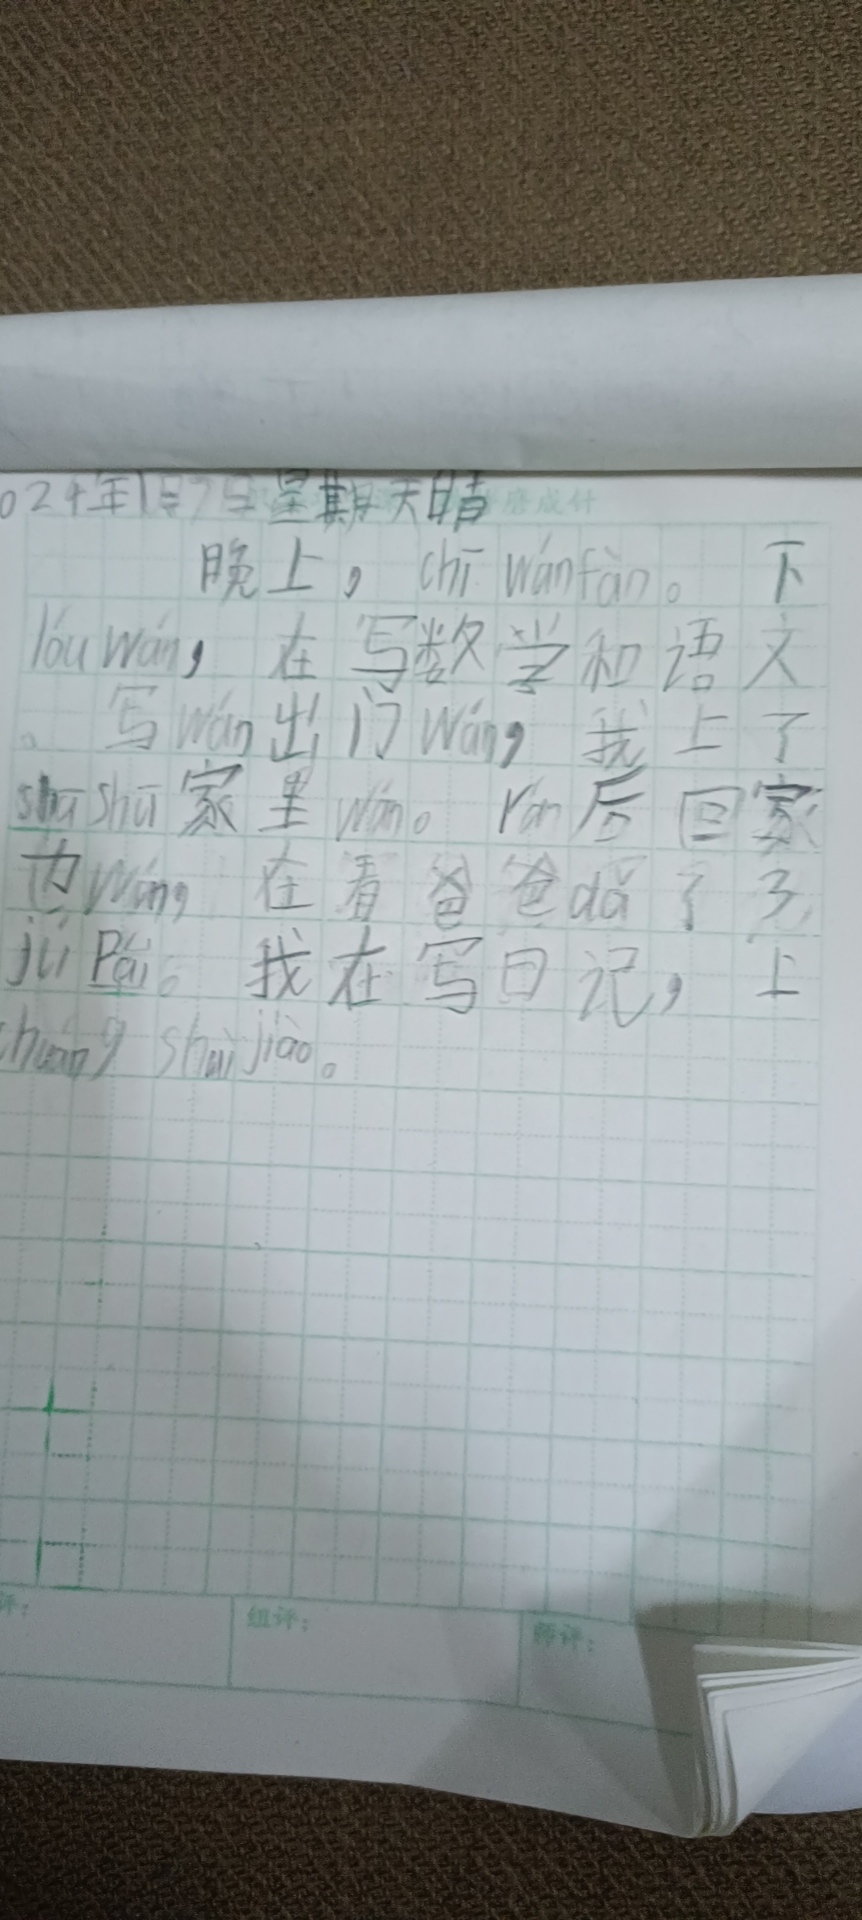 024年1月7日星期天晴
晚上，chī wánfàn。下
lóu wán，在写数学和语文
。写wán出门wán，我上了
shū shū家里wán。rán后回家
边wán，在看爸爸dǎ了了
jǐ Pái。我在写日记，上
chuáng shuì jiào。
评：
组评：
师评：